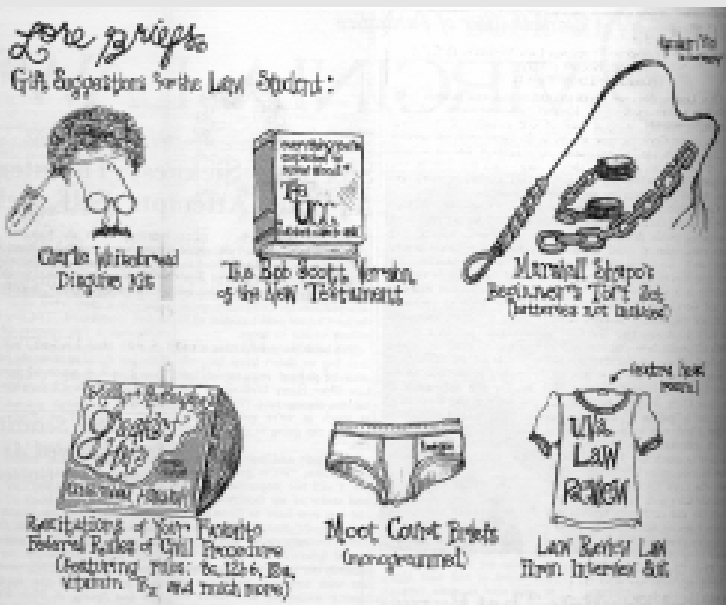 Lore Briefs
Gift Suggestions for the Law Student:
Charlie Whitebread
Disguise Kit
everything you're
expected to
The
UCC
The Bob Scott Version
of the New Testament
Marshall Shapo's
Beginner's Tort Set
(batteries not included)
greatest
Hits
Recitations of Your Favorite
Federal Rules of Civil Procedure
(featuring rules:
vitamin and much more)
Moot Court Briefs
(monogrammed)
(extra head
room)
UVa.
LAW
REVIEW
Law Review Law
Firm Interview Suit